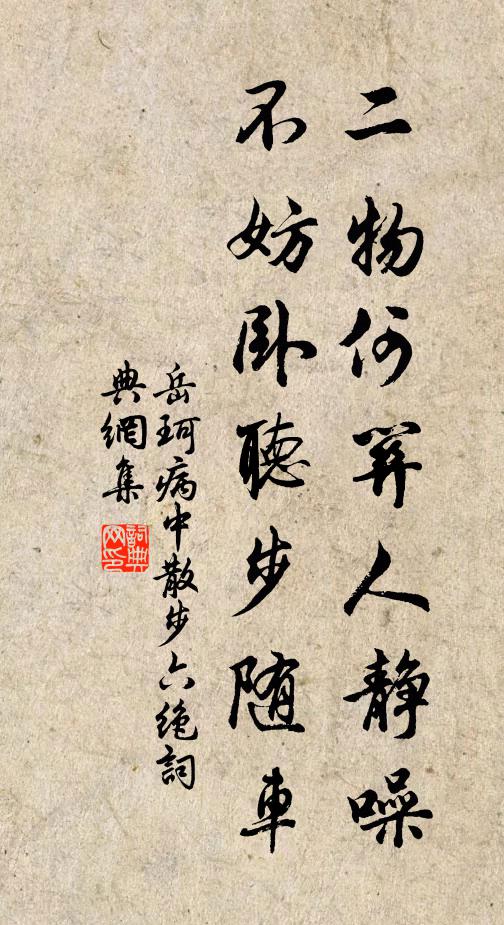 二物何關人静噪
不妨卧聽步随車
岳珂病中散步六絶詞
典網集
詞典
网印